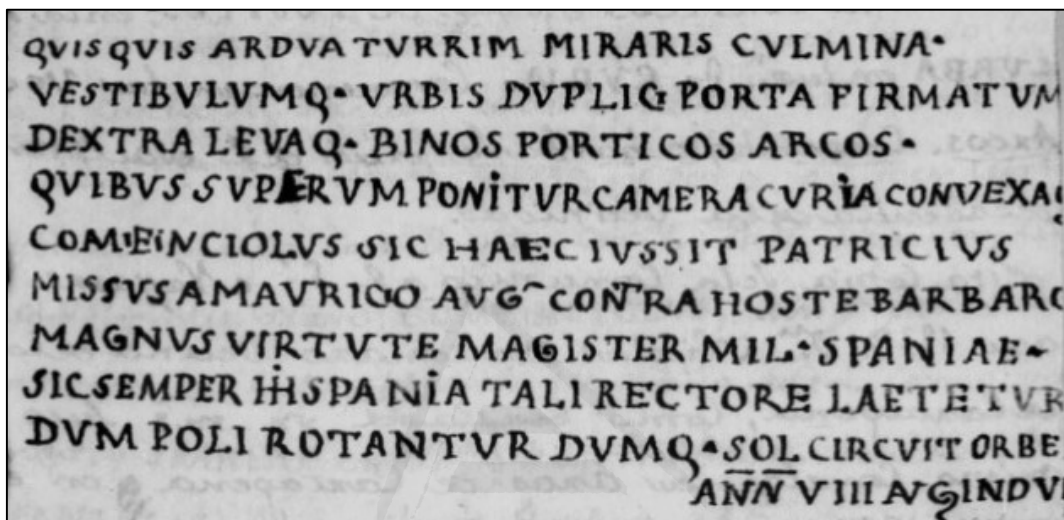 QVISQVIS ARDVA TVRRIM MIRARIS CVLMINA·
VESTIBVLVMQ· VRBIS DVPLICI PORTA FIRMATVM
DEXTRA LEVAQ· BINOS PORTICOS ARCOS·
QVIBVS SVPERVM PONITVR CAMERA CVRIA CONVEXA
COMENCIOLVS SIC HAEC IVSSIT PATRICIVS
MISSVS A MAVRICIO AVG CONTRA HOSTE BARBARO
MAGNVS VIRTVTE MAGISTER MIL· SPANIAE
SIC SEMPER HISPANIA TALI RECTORE LAETETVR
DVM POLI ROTANTVR DVMQ· SOL CIRCVIT ORBE
ANN VIII AVG IND VI